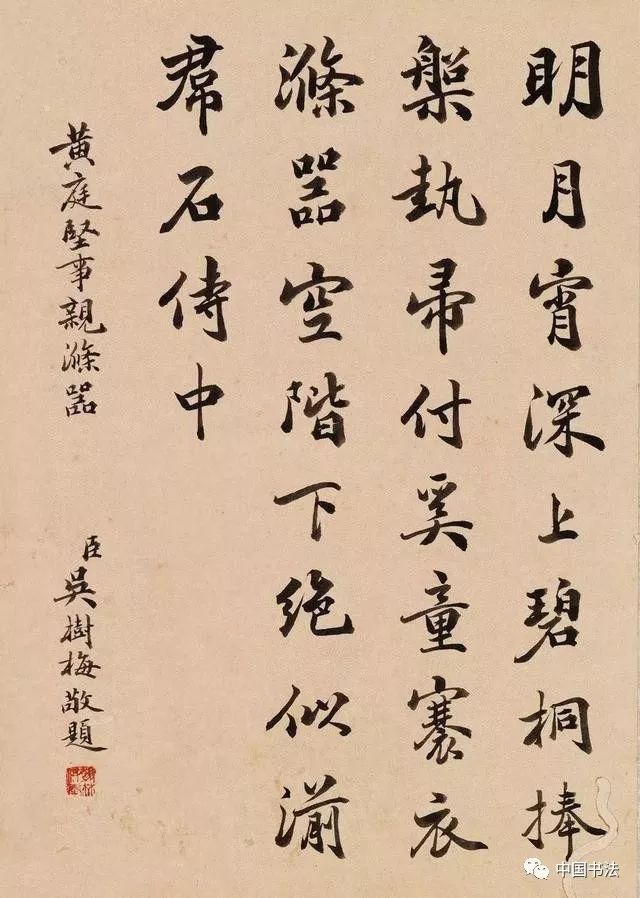 明月宵深上碧桐捧
槃執帚付奚童褰衣
滌器空階下絶似湔
帬石侍中
黃庭堅事親滌器
臣吳樹梅敬題
中国书法